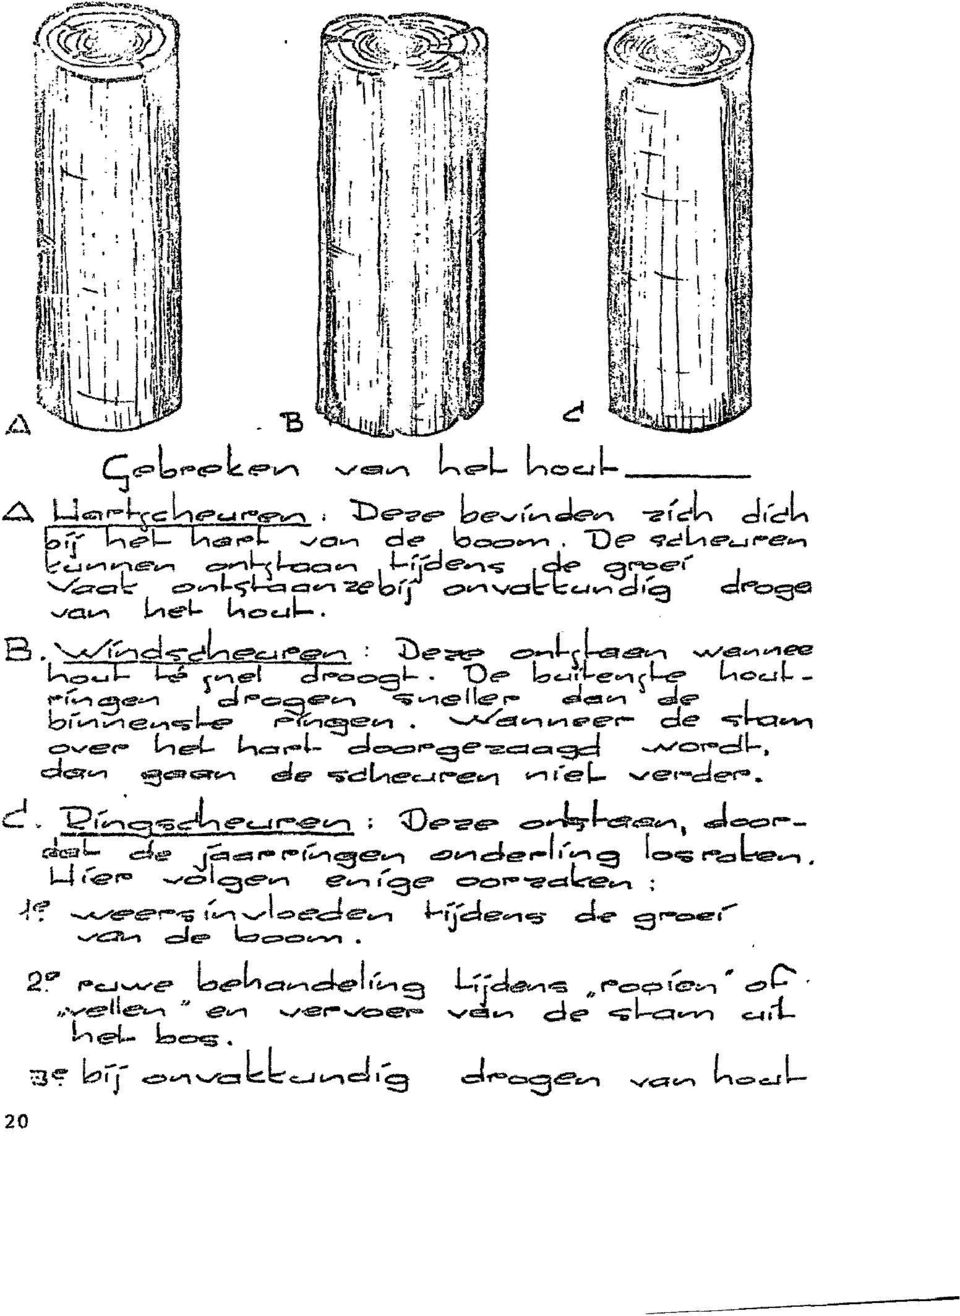 A
B
C
Gebreken van het hout
A Hartscheuren : Deze bevinden zich dich
bij het hart van de boom. De scheuren
kunnen ontstaan tijdens de groei
Vaak ontstaan ze bij onvakkundig droge
van het hout.
B. Windscheuren : Deze ontstaan wannee
hout té snel droogt. De buitenste hout-
ringen drogen sneller dan de
binnenste ringen. Wanneer de stam
over het hart doorgezaagd wordt,
dan gaan de scheuren niet verder.
C. Ringscheuren : Deze ontstaan, door-
dat de jaarringen onderling los raken.
Hier volgen enige oorzaken :
1e weersinvloeden tijdens de groei
van de boom.
2e ruwe behandeling tijdens „rooien" of
„vellen" en vervoer van de stam uit
het bos.
3e bij onvakkundig drogen van hout
20